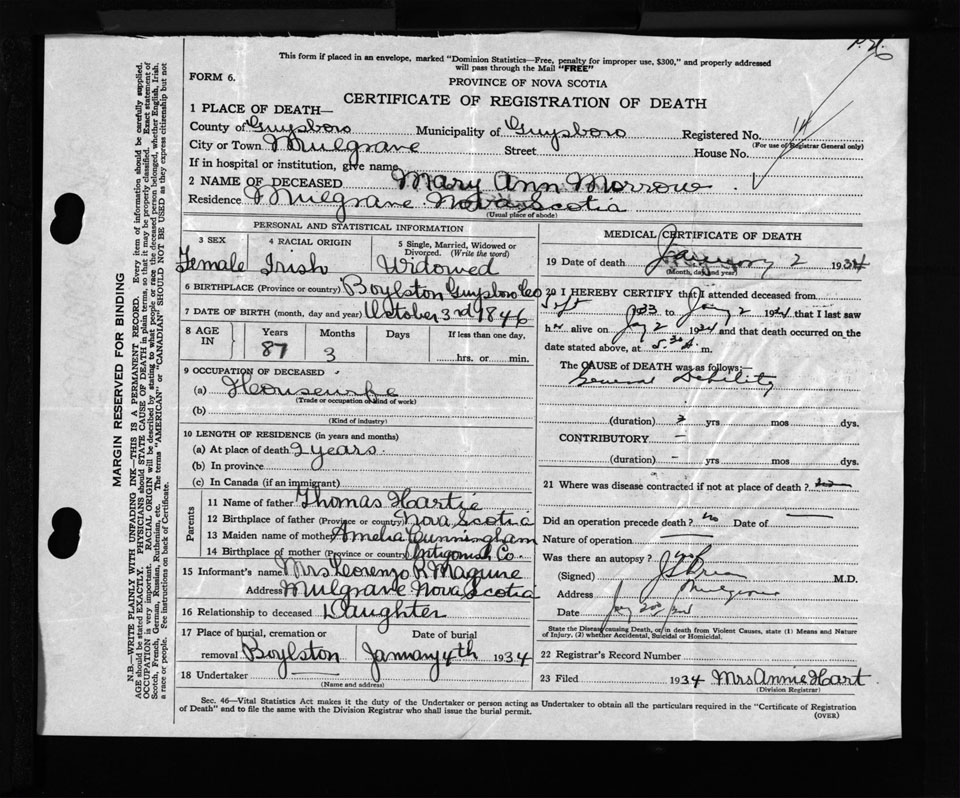 P. H.
This form if placed in an envelope, marked "Dominion Statistics—Free, penalty for improper use, $300," and properly addressed
will pass through the Mail "FREE"
FORM 6.
PROVINCE OF NOVA SCOTIA
CERTIFICATE OF REGISTRATION OF DEATH
1 PLACE OF DEATH—
County of Guysboro Municipality of Guysboro Registered No. 14
(For use of Registrar General only)
City or Town Mulgrave Street House No.
If in hospital or institution, give name
2 NAME OF DECEASED Mary Ann Morrow
Residence Mulgrave Nova Scotia
(Usual place of abode)
PERSONAL AND STATISTICAL INFORMATION
3 SEX 4 RACIAL ORIGIN 5 Single, Married, Widowed or
Divorced. (Write the word)
Female Irish Widowed
6 BIRTHPLACE (Province or country) Boylston Guysboro Co
7 DATE OF BIRTH (month, day and year) October 3rd 1846
8 AGE IN Years Months Days If less than one day.
87 3 hrs. or min.
9 OCCUPATION OF DECEASED
(a) Housewife
(Trade or occupation or kind of work)
(b)
(Kind of industry)
10 LENGTH OF RESIDENCE (in years and months)
(a) At place of death 2 years.
(b) In province
(c) In Canada (if an immigrant)
Parents
11 Name of father Thomas Hartie
12 Birthplace of father (Province or country) Nova Scotia
13 Maiden name of mother Amelia Cunningham
14 Birthplace of mother (Province or country) Antigonish Co.
15 Informant's name Mrs Lorenzo R Maguire
Address Mulgrave Nova Scotia
16 Relationship to deceased Daughter
17 Place of burial, cremation or Date of burial
removal Boylston January 4th 1934
18 Undertaker
(Name and address)
MEDICAL CERTIFICATE OF DEATH
19 Date of death January 2 1934
(Month, day and year)
20 I HEREBY CERTIFY that I attended deceased from
Sept 1933 to Jany 2 1934 that I last saw
her alive on Jany 2 1934 and that death occurred on the
date stated above, at 5.30 A. m.
The CAUSE of DEATH was as follows:—
General Debility
(duration) yrs mos dys.
CONTRIBUTORY —
(duration) — yrs. mos. dys.
21 Where was disease contracted if not at place of death?
Did an operation precede death? no Date of —
Nature of operation —
Was there an autopsy? no
(Signed) M.D.
Address Mulgrave
Date Jany 2nd
State the Disease causing Death, or, in death from Violent Causes, state (1) Means and Nature
of Injury, (2) whether Accidental, Suicidal or Homicidal.
22 Registrar's Record Number
23 Filed 1934 Mrs Annie Hart.
(Division Registrar)
Sec. 46—Vital Statistics Act makes it the duty of the Undertaker or person acting as Undertaker to obtain all the particulars required in the "Certificate of Registration
of Death" and to file the same with the Division Registrar who shall issue the burial permit.
(OVER)
MARGIN RESERVED FOR BINDING
N.B.—WRITE PLAINLY WITH UNFADING INK—THIS IS A PERMANENT RECORD. Every item of information should be carefully supplied.
AGE should be stated EXACTLY. PHYSICIANS should STATE CAUSE OF DEATH in plain terms, so that it may be properly classified. Exact statement of
OCCUPATION is very important. RACIAL ORIGIN will be described by stating to what people or race the deceased person belonged, whether English, Irish,
Scotch, French, German, Russian, Ruthenian, etc. The terms "AMERICAN" or "CANADIAN" SHOULD NOT BE USED as they express citizenship but not
a race or people. See instructions on back of Certificate.